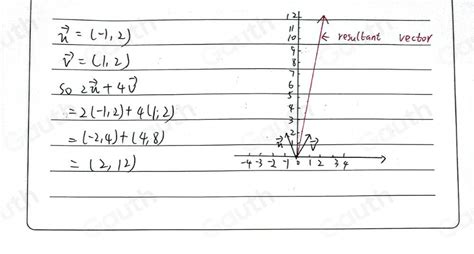 u⃗ = (-1,2)
v⃗ = (1,2)
so 2u⃗ + 4v⃗
= 2(-1,2)+4(1,2)
= (-2,4)+(4,8)
= (2,12)
12
11
10
9
8
7
6
5
4
3
2
← resultant vector
u⃗ v⃗
-4 -3 -2 -1 0 1 2 3 4
Gauth